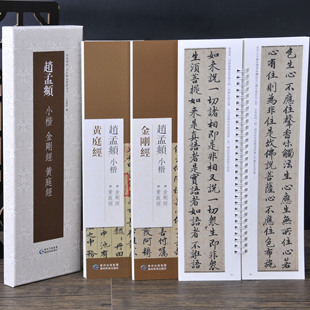 趙孟頫
小楷 金剛經 黃庭經
趙孟頫 小楷
黃庭經
趙孟頫 小楷
金剛經
如來說一切諸相即是非相又說一切衆生即非衆
生須菩提如來是真語者實語者如語者
色生心不應住聲香味觸法生心應生無所住心若
心有住則為非住是故佛說菩薩心不應住色布施